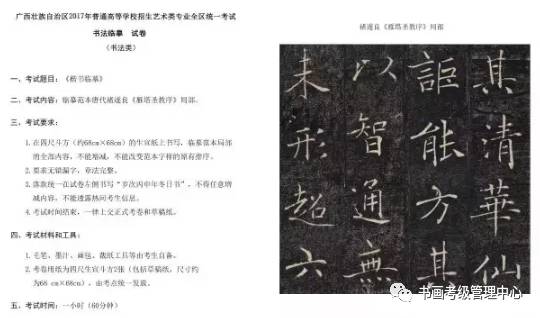 广西壮族自治区2017年普通高等学校招生艺术类专业全区统一考试
书法临摹 试卷
（书法类）
一、考试题目：《楷书临摹》
二、考试内容：临摹范本唐代褚遂良《雁塔圣教序》局部。
三、考试要求：
1.在四尺斗方（约68cm×68cm）的生宣纸上书写，临摹范本局部
的全部内容，不能增减，不能改变范本字样的原有排序。
2.要求无错漏字，章法完整。
3.落款统一在试卷左侧书写“岁次丙申年冬日书”，不得任意增
减内容，不能透露热问考生信息。
4.考试时间结束，一律上交正式考卷和草稿纸。
四、考试材料和工具：
1.毛笔、墨汁、画毡、裁纸工具等由考生自备。
2.考卷用纸为四尺生宣斗方2张（包括草稿纸，尺寸约
为68 cm×68cm），由考点统一发放。
五、考试时间：一小时（60分钟）
褚遂良《雁塔圣教序》局部
其清華仙
詎能方其
以智通無
未形超六
书画考级管理中心